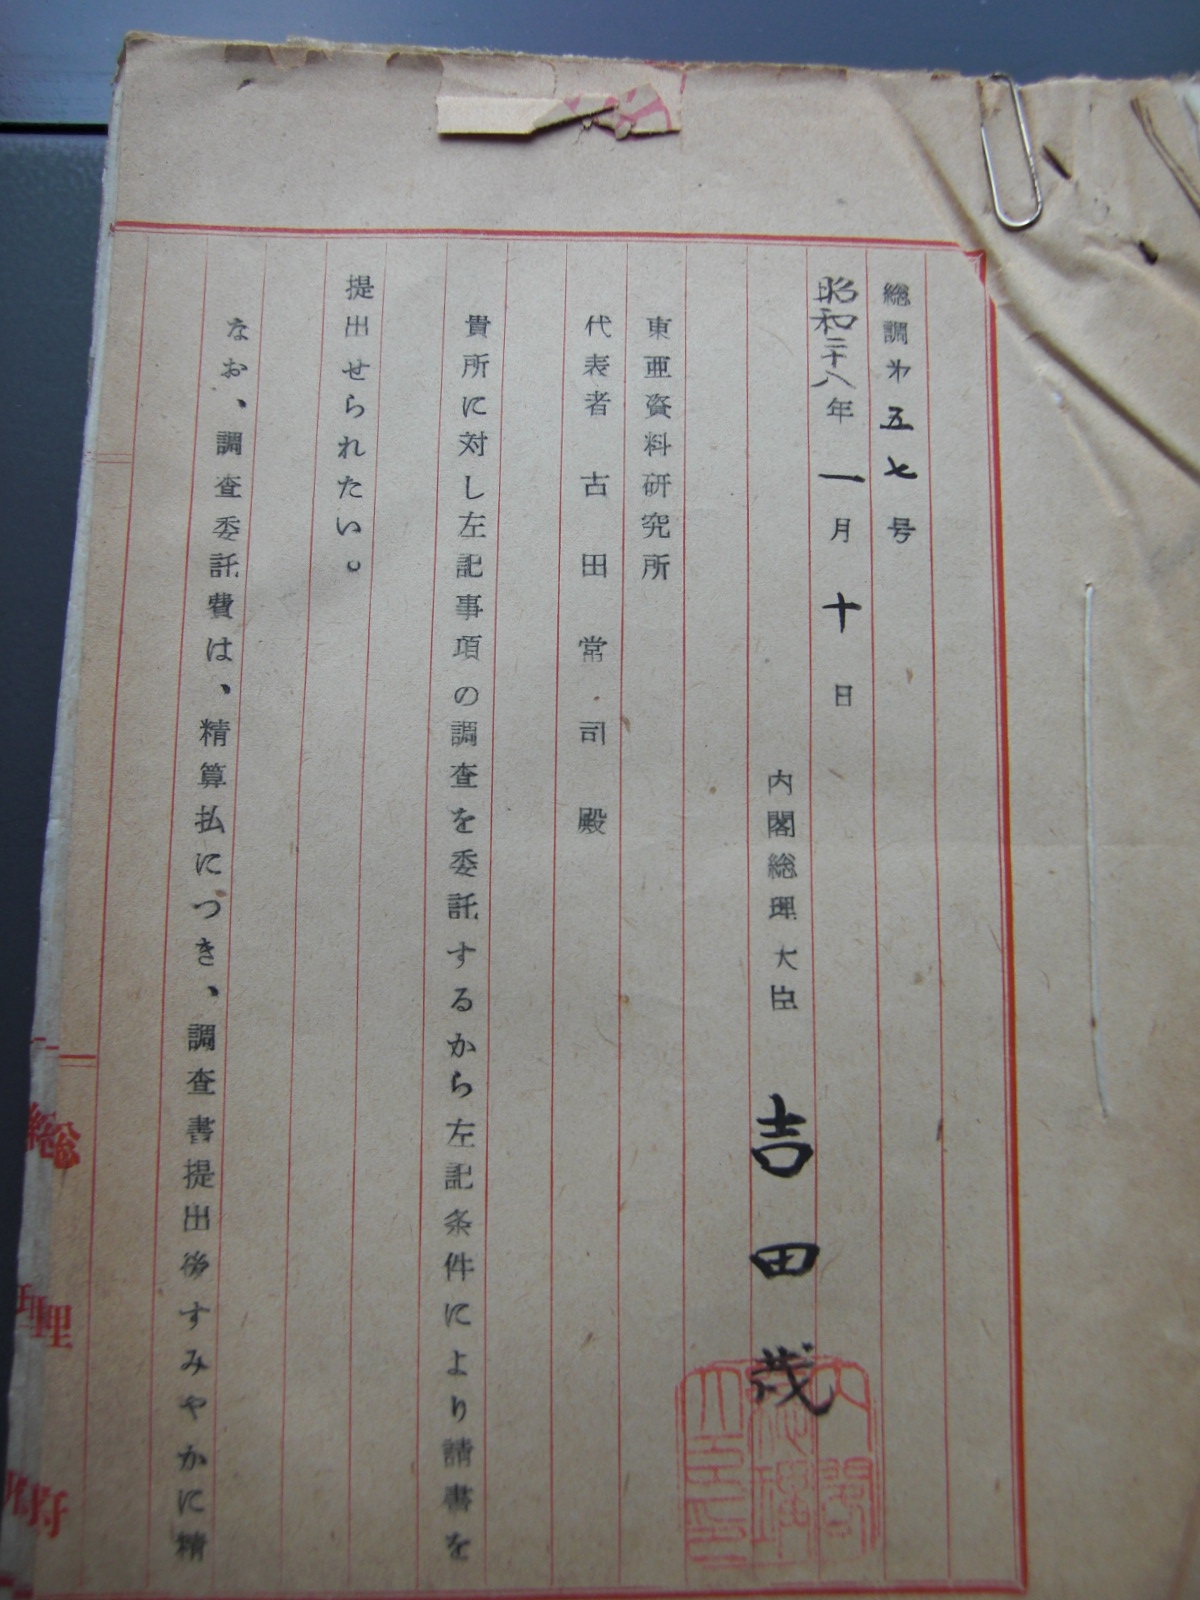 総調才五七号
昭和二十八年一月十日
内閣総理大臣 吉田茂
東亜資料研究所
代表者 古田常司殿
貴所に対し左記事項の調査を委託するから左記条件により請書を
提出せられたい。
なお、調査委託費は、精算払につき、調査書提出後すみやかに精
総理府
内閣総理大臣印